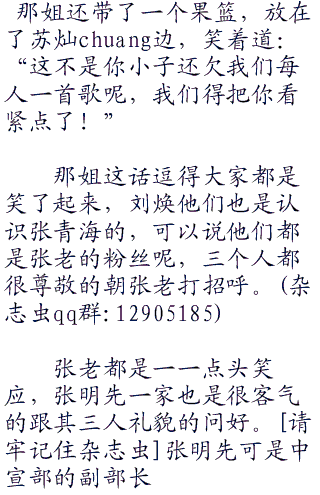 那姐还带了一个果篮，放在
了苏灿chuang边，笑着道：
“这不是你小子还欠我们每
人一首歌呢，我们得把你看
紧点了！”
那姐这话逗得大家都是
笑了起来，刘焕他们也是认
识张青海的，可以说他们都
是张老的粉丝呢，三个人都
很尊敬的朝张老打招呼。(杂
志虫qq群:12905185)
张老都是一一点头笑
应，张明先一家也是很客气
的跟其三人礼貌的问好。[请
牢记住杂志虫]张明先可是中
宣部的副部长